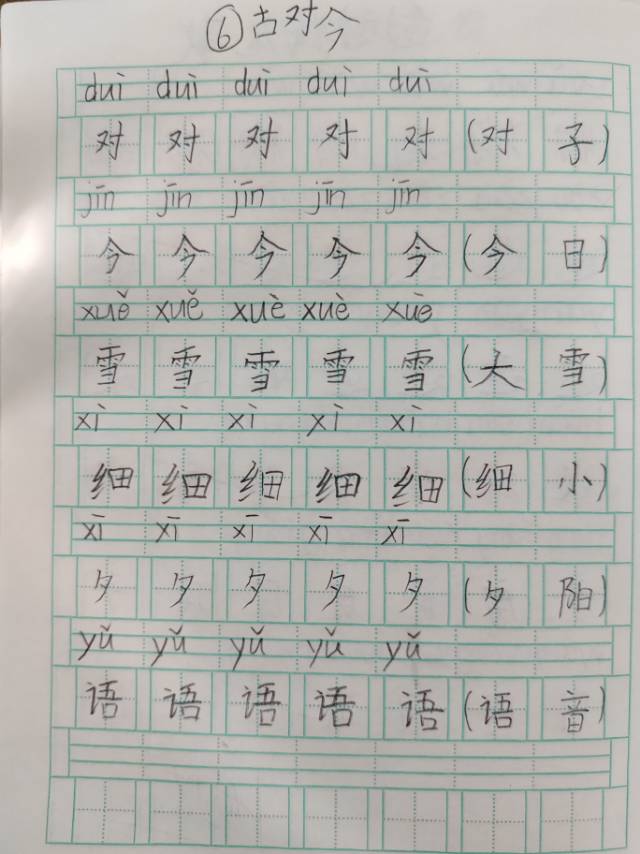 ⑥古对今
duì duì duì duì duì
对 对 对 对 对 (对 子)
jīn jīn jīn jīn jīn
今 今 今 今 今 (今 日)
xuě xuě xuè xuè xuè
雪 雪 雪 雪 雪 (大 雪)
xì xì xì xì xì
细 细 细 细 细 (细 小)
xī xī xī xī xī
夕 夕 夕 夕 夕 (夕 阳)
yǔ yǔ yǔ yǔ yǔ
语 语 语 语 语 (语 音)